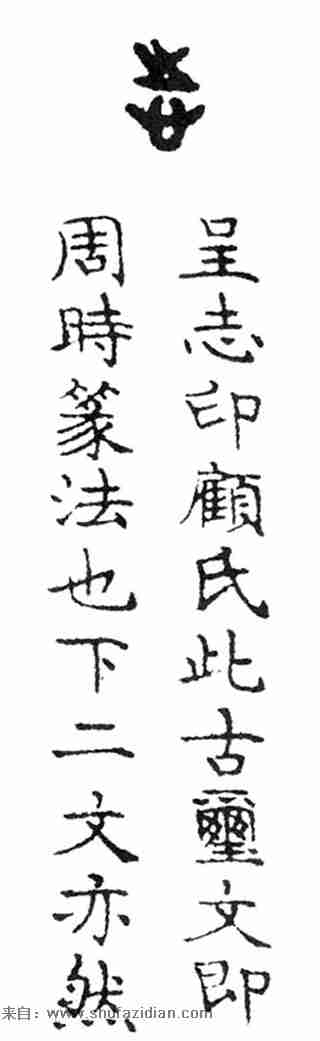 呈志印顧氏此古璽文即
周時篆法也下二文亦然
来自：www.shufazidian.com